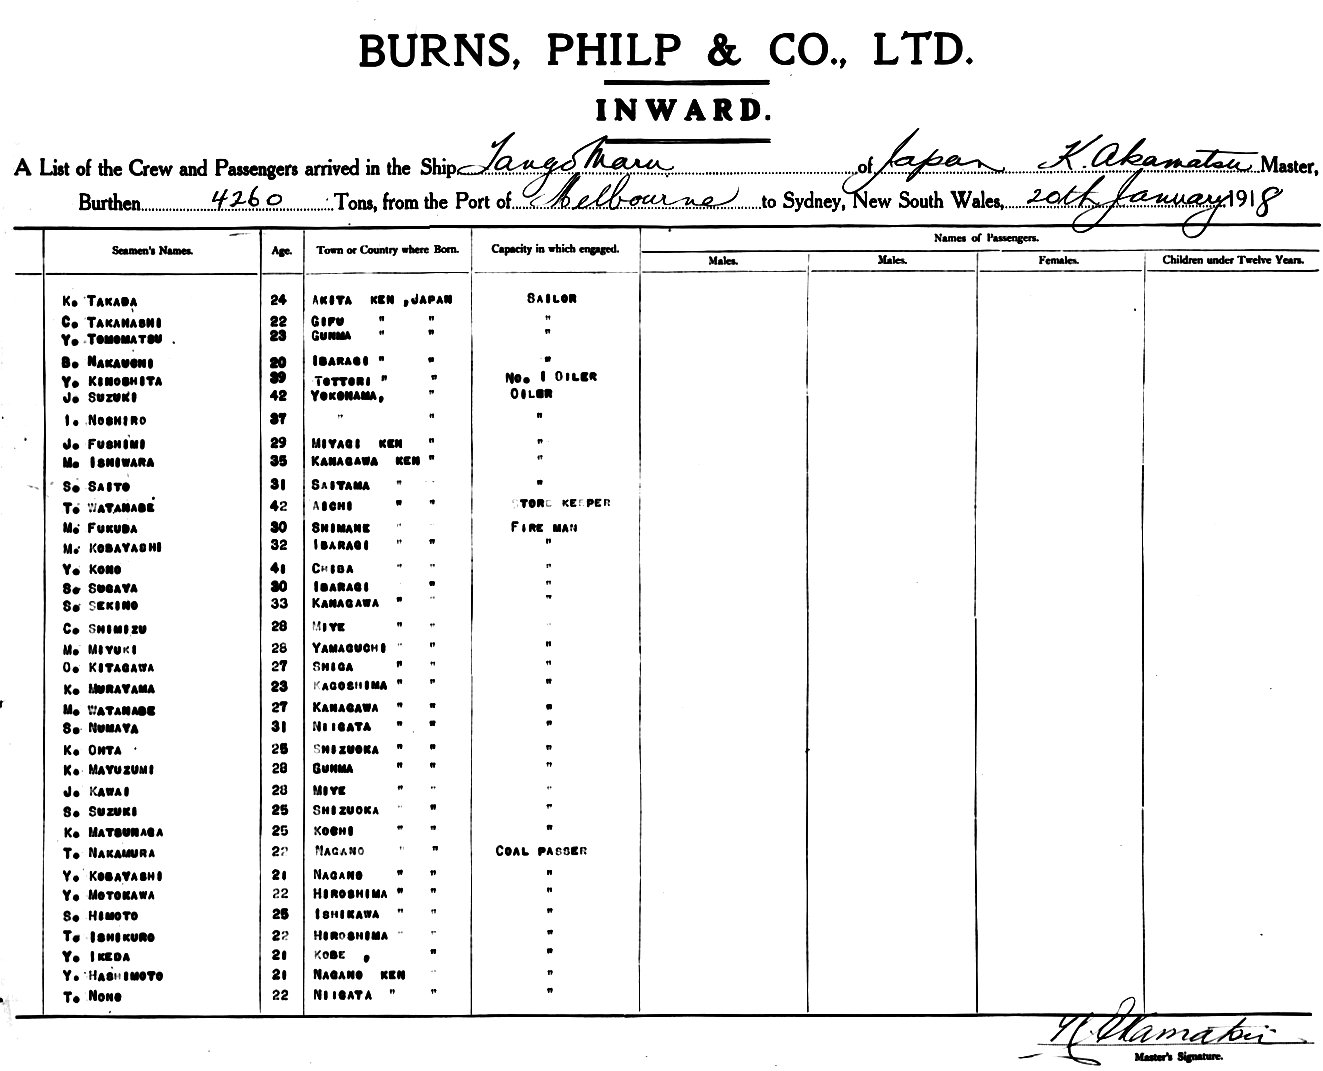 BURNS, PHILP & CO., LTD.
INWARD.
A List of the Crew and Passengers arrived in the Ship Tango Maru of Japan K. Akamatsu Master,
Burthen 4260 Tons, from the Port of Melbourne to Sydney, New South Wales, 20th January 1918
Seamen's Names. Age. Town or Country where Born. Capacity in which engaged. Names of Passengers.
Males. Males. Females. Children under Twelve Years.
K. TAKADA 24 AKITA KEN ,JAPAN SAILOR
C. TAKAHASHI 22 GIFU " " "
Y. TOMOMATSU . 23 GUNMA " " "
B. NAKAUCHI 20 IBARAGI " " "
Y. KINOSHITA 39 TOTTORI " " No. 1 OILER
J. SUZUKI 42 YOKOHAMA, " OILER
I. NOSHIRO 37 " " "
J. FUSHIMI 29 MIYAGI KEN " "
M. ISHIWARA 35 KANAGAWA KEN " "
S. SAITO 31 SAITAMA " "
T. WATANABE 42 AICHI " " STORE KEEPER
M. FUKUDA 30 SHIMANE " FIRE MAN
M. KOBAYASHI 32 IBARAGI " " "
Y. KONO 41 CHIBA " " "
S. SUGAYA 30 IBARAGI " "
S. SEKINO 33 KANAGAWA " " "
C. SHIMIZU 28 MIYE " "
M. MIYUKI 28 YAMAGUCHI " " "
O. KITAGAWA 27 SHIGA " " "
K. MURAYAMA 23 KAGOSHIMA " " "
M. WATANABE 27 KANAGAWA " " "
S. NUMAYA 31 NIIGATA " " "
K. OHTA 25 SHIZUOKA " " "
K. MAYUZUMI 28 GUNMA " " "
J. KAWAI 28 MIYE " " "
S. SUZUKI 25 SHIZUOKA " " "
K. MATSUNAGA 25 KOCHI " " "
T. NAKAMURA 22 NAGANO " " COAL PASSER
Y. KOBAYASHI 21 NAGANO " " "
Y. MOTOKAWA 22 HIROSHIMA " " "
S. HIMOTO 25 ISHIKAWA " " "
T. ISHIKURO 22 HIROSHIMA " " "
Y. IKEDA 21 KOBE , " "
Y. HASHIMOTO 21 NAGANO KEN " "
T. NONO 22 NIIGATA " " "
K. Akamatsu
Master's Signature.